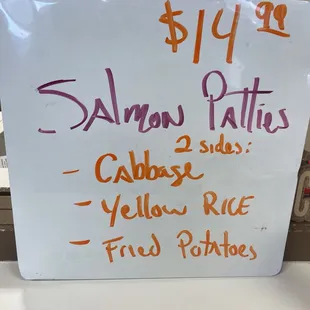 $14.99
Salmon Patties
2 sides:
- Cabbage
- Yellow RICE
- Fried Potatoes